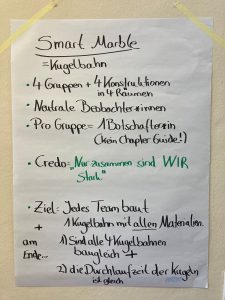 Smart Marble
= Kugelbahn
• 4 Gruppen + 4 Konstruktionen
in 4 Räumen
• Neutrale Beobachter*innen
• Pro Gruppe = 1 Botschafter*in
(Kein Chapter Guide!)
• Credo = "Nur zusammen sind WIR
Stark"
• Ziel: Jedes Team baut
+ 1 Kugelbahn mit allen Materialien.
am Ende... 1) Sind alle 4 Kugelbahnen
baugleich +
2) die Durchlaufzeit der Kugeln
ist gleich